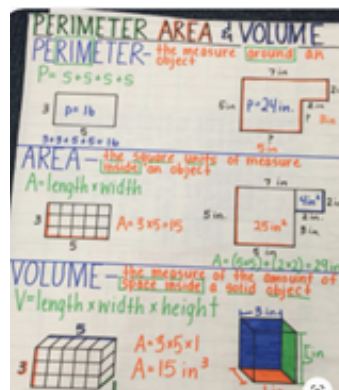 PERIMETER AREA & VOLUME
PERIMETER- the measure around an
object
P= S+S+S+S
7in
2in
3
P=16
5
3+3+5+5=16
5in
P=24in.
2in
?
3in
?
5in
AREA- the square units of measure
inside an object
A=length x width
3
5
A=3x5=15
7in
5in.
4in²
2in
2in.
3in
25in²
5in
A=(5x5)+(2x2)=29in
VOLUME- the measure of the amount of
space inside a solid object
V=length x width x height
5
3
1
A=3x5x1
A=15in³
3in
5in